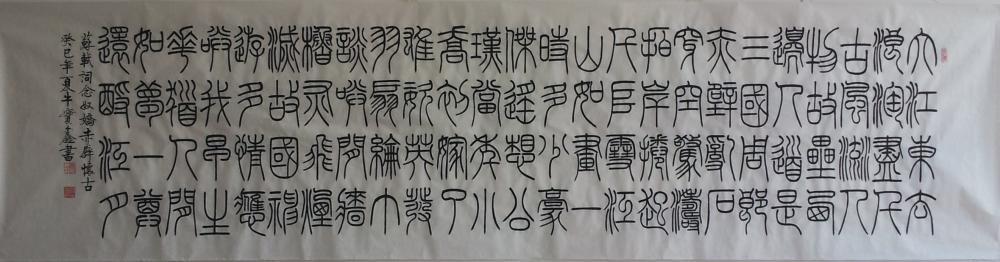 大江東去
浪淘盡千
古風流人
物故壘西
邊人道是
三國周郎
赤壁亂石
穿空驚濤
拍岸捲起
千堆雪江
山如畫一
時多少豪
傑遙想公
瑾當年小
喬初嫁了
雄姿英發
羽扇綸巾
談笑間檣
櫓灰飛煙
滅故國神
遊多情應
笑我早生
華髮人間
如夢一尊
還酹江月
蘇軾詞念奴嬌赤壁懷古
癸巳年夏牛寶鑫書